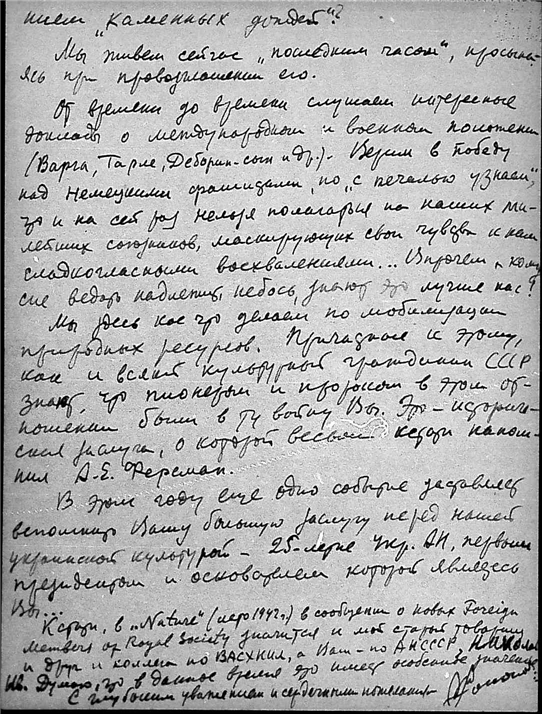 нием „каменных дождей“?
Мы живем сейчас „последним часом“, просыпа-
ясь при провозглашении его.
От времени до времени слушаем интересные
доклады о международном и военном положении
(Варга, Тарле, Деборин-сын и др.). Верим в победу
над немецкими фашистами, но „с печалью узнаем“,
что и на сей раз нельзя полагаться на наших ми-
лейших союзников, маскирующих свои чувства к нам
сладкогласными восхвалениями... Впрочем „кому
сие ведать надлежит, небось знают это лучше нас?
Мы здесь кое что делаем по мобилизации
природных ресурсов. Причастные к этому,
как и всякий культурный гражданин СССР
знают, что пионером и пророком в этом от-
ношении были в ту войну Вы. Это – историче-
ская заслуга, о которой весьма кстати напом-
нил А.Е. Ферсман.
В этом году еще одно событие заставляет
вспомнить Вашу большую заслугу перед нашей
украинской культурой – 25-летие Укр. АН, первым
президентом и основателем которой являетесь
Вы...
Кстати, в „Nature“ (лето 1942 г.) в сообщении о новых Foreign
Members of Royal Society значится и мой старый товарищ
и друг и коллега по ВАСХНИЛ, а Ваш – по АН СССР, Николай
Ив. Думаю, что в данное время это имеет особенное значение
С глубоким уважением и сердечными пожеланиями